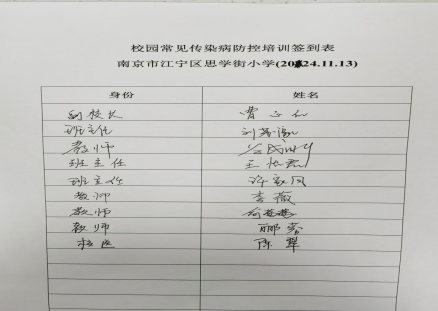 校园常见传染病防控培训签到表
南京市江宁区思学街小学(2024.11.13)
身份 姓名
副校长 曹
班主任 刘
教师
班主任 王
班主任 许
教师 李薇
教师 何
教师 郦蓉
校医 陈翠